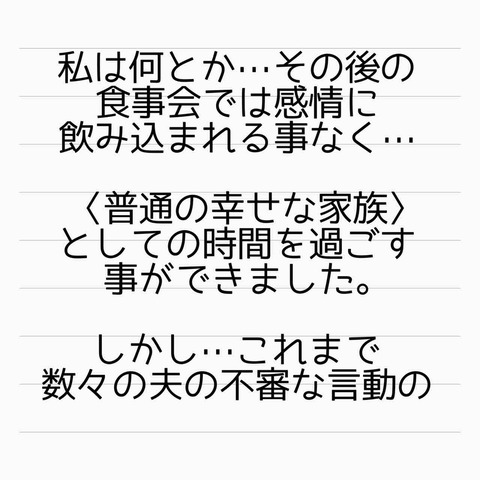 私は何とか…その後の
食事会では感情に
飲み込まれる事なく…
〈普通の幸せな家族〉
としての時間を過ごす
事ができました。
しかし…これまで
数々の夫の不審な言動の